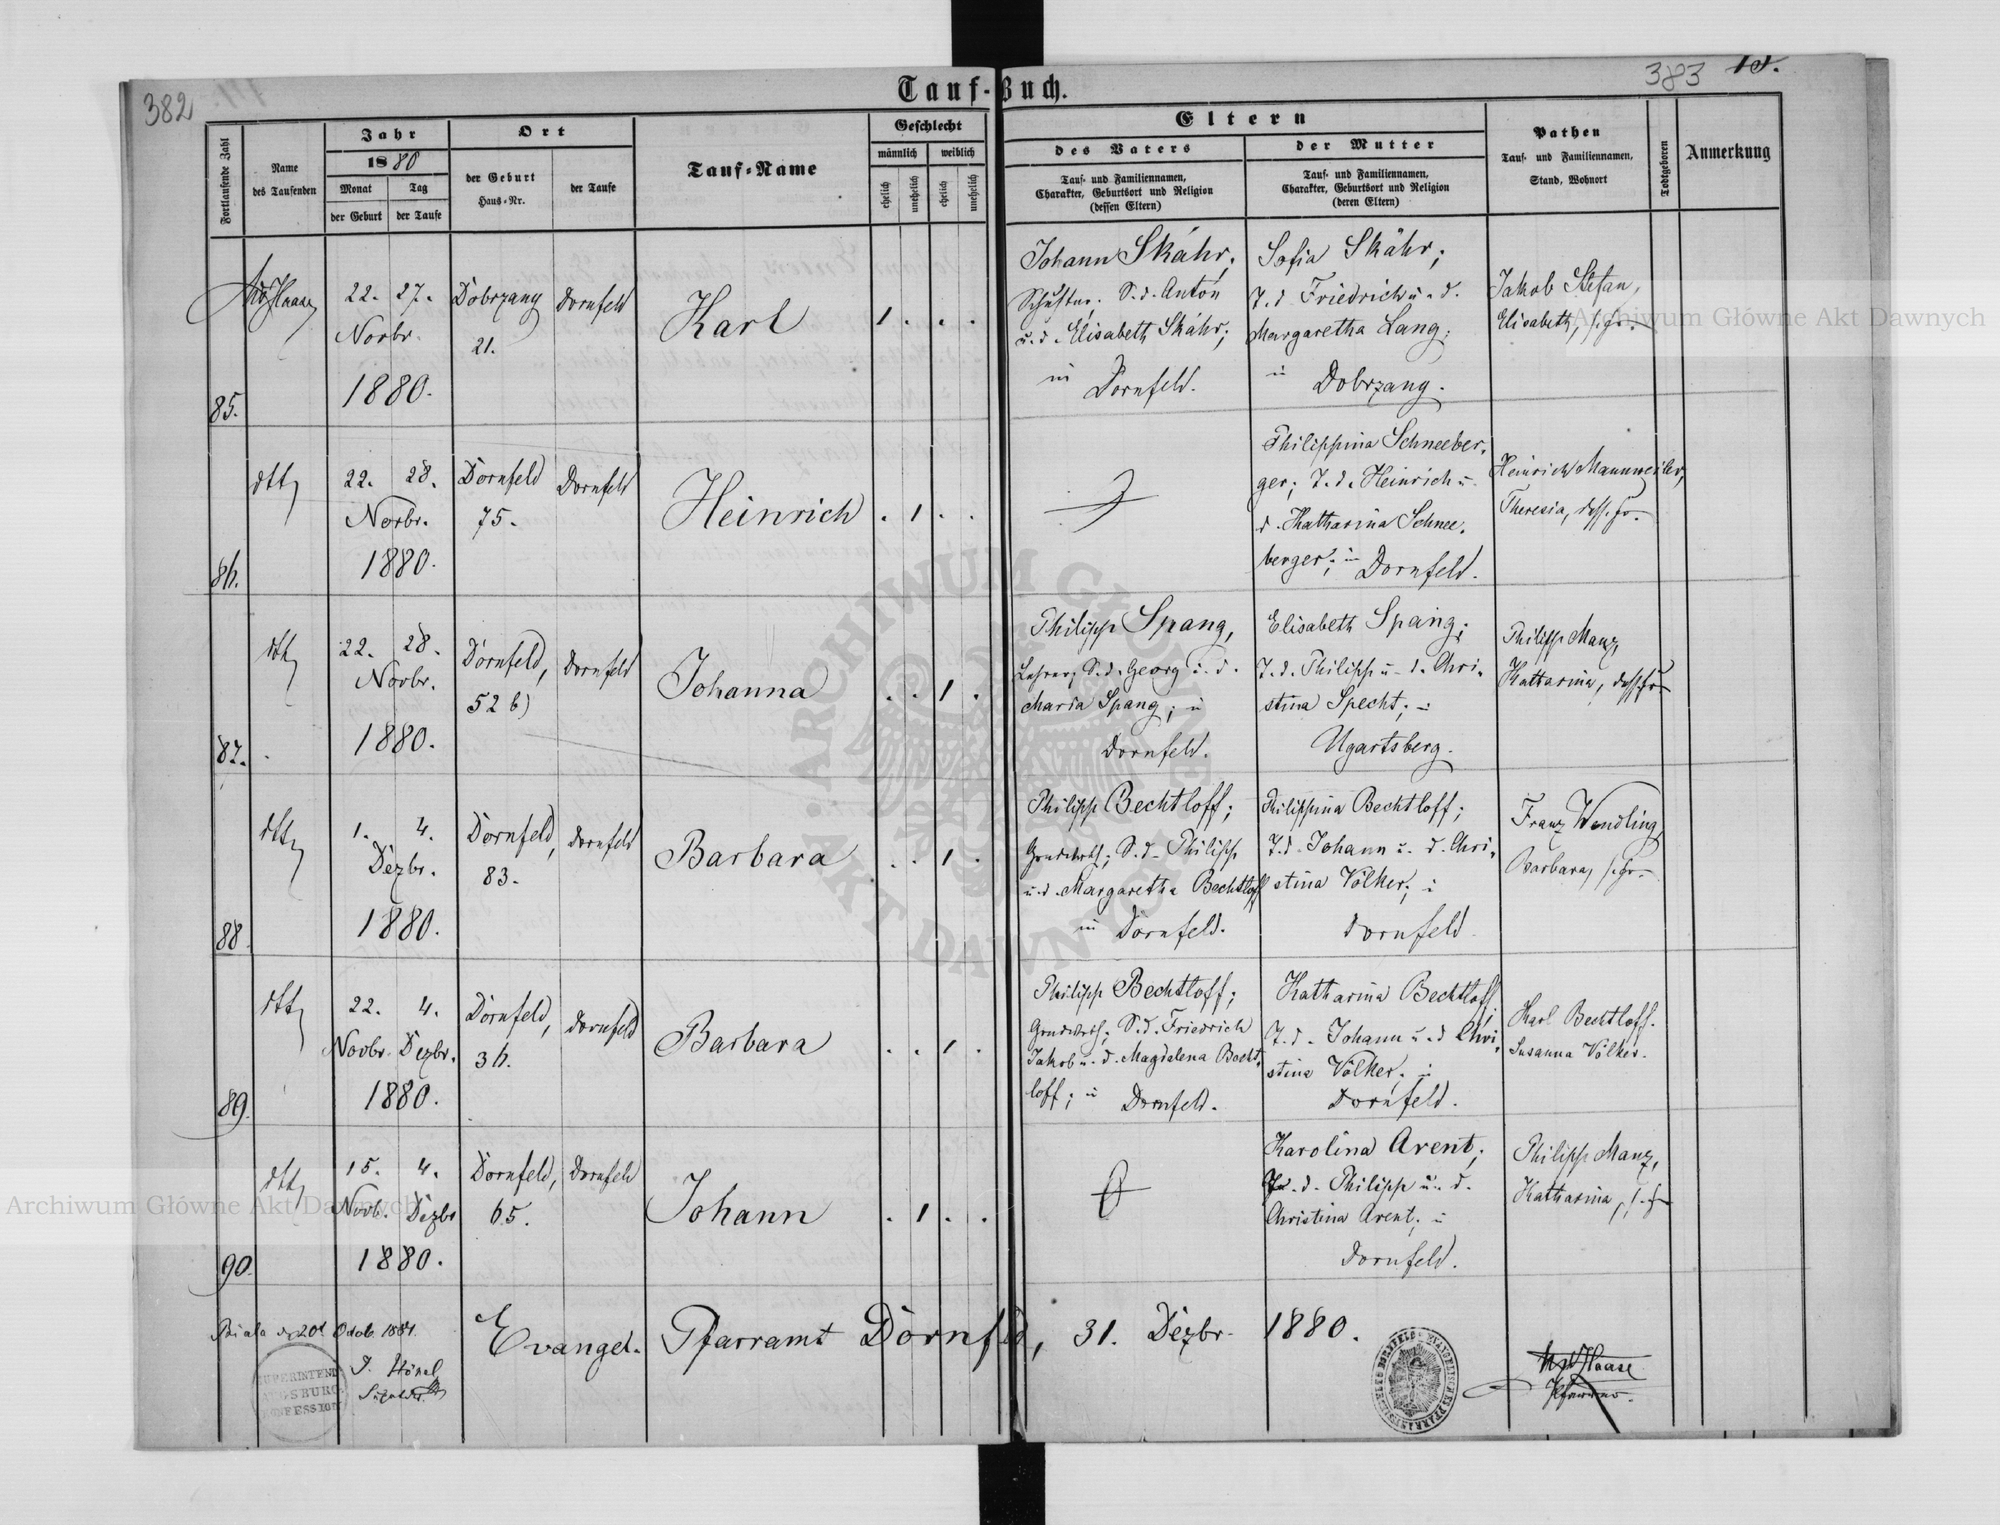 382
383
Tauf-Buch.
Fortlaufende Zahl
Name
des Taufenden
Jahr
1880
Monat
Tag
der Geburt
der Taufe
Ort
der Geburt
Haus-Nr.
der Taufe
Tauf-Name
Geschlecht
männlich
weiblich
ehelich
unehelich
ehelich
unehelich
Eltern
des Vaters
Tauf- und Familiennamen,
Charakter, Geburtsort und Religion
(dessen Eltern)
der Mutter
Tauf- und Familiennamen,
Charakter, Geburtsort und Religion
(deren Eltern)
Pathen
Tauf- und Familiennamen,
Stand, Wohnort
Todtgeboren
Anmerkung
85.
22. 27.
Novbr.
1880.
Dobrzany
21.
Dornfeld
Karl
1 . . .
Johann Skáhr,
Schuster. S. d. Anton
u. d. Elisabeth Skáhr;
in Dornfeld.
Sofia Skáhr;
T. d. Friedrich u. d.
Margaretha Lang;
in Dobrzany.
Jakob Stefan,
Elisabeth,
86.
dtto
22. 28.
Novbr.
1880.
Dornfeld
75.
Dornfeld
Heinrich
. 1 . .
Philippina Schneeber-
ger; T. d. Heinrich u.
d. Katharina Schnee-
berger; in Dornfeld.
Heinrich Mannweiler,
Theresia, dess. Fr.
87.
dtto
22. 28.
Novbr.
1880.
Dornfeld,
52 b)
Dornfeld
Johanna
. . 1 .
Philipp Spang,
Lehrer, S. d. Georg u. d.
Maria Spang; in
Dornfeld.
Elisabeth Spang;
T. d. Philipp u. d. Chri-
stina Specht; in
Ugartsberg.
Philipp Manz,
Katharina, dess. Fr.
88.
dtto
1. 4.
Dezbr.
1880.
Dornfeld,
83.
Dornfeld
Barbara
. . 1 .
Philipp Bechtloff;
Grundwrth; S. d. Philipp
u. d. Margaretha Bechtloff
in Dornfeld.
Philippina Bechtloff;
T. d. Johann u. d. Chri-
stina Völker; in
Dornfeld
Franz Wendling
Barbara,
89.
dtto
22. 4.
Novbr. Dezbr.
1880.
Dornfeld,
36.
Dornfeld
Barbara
. . 1 .
Philipp Bechtloff;
Grundwrth; S. d. Friedrich
Jakob u. d. Magdalena Becht-
loff; in Dornfeld.
Katharina Bechtloff;
T. d. Johann u. d. Chri-
stina Völker; in
Dornfeld.
Karl Bechtloff.
Susanna Völker.
90.
dtto
15. 4.
Novb. Dezbr
1880.
Dornfeld,
65.
Dornfeld
Johann
. 1 . .
Karolina Arent;
T. d. Philipp u. d.
Christina Arent; in
Dornfeld.
Philipp Manz,
Katharina,
Biala d. 20t Octob. 1881.
Evangel. Pfarramt Dornfeld, 31. Dezbr. 1880.
Haase
Pfarrer.
SUPERINTEND
AUGSBURG.
CONFESSION
ARCHIWUM GŁÓWNE AKT DAWNYCH
Archiwum Główne Akt Dawnych
Archiwum Główne Akt Dawnych